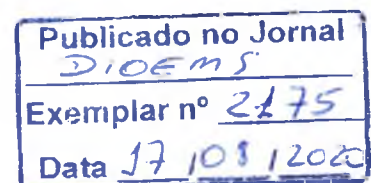 Publicado no Jornal
DIOEMS
Exemplar nº 2175
Data 17/08/2020